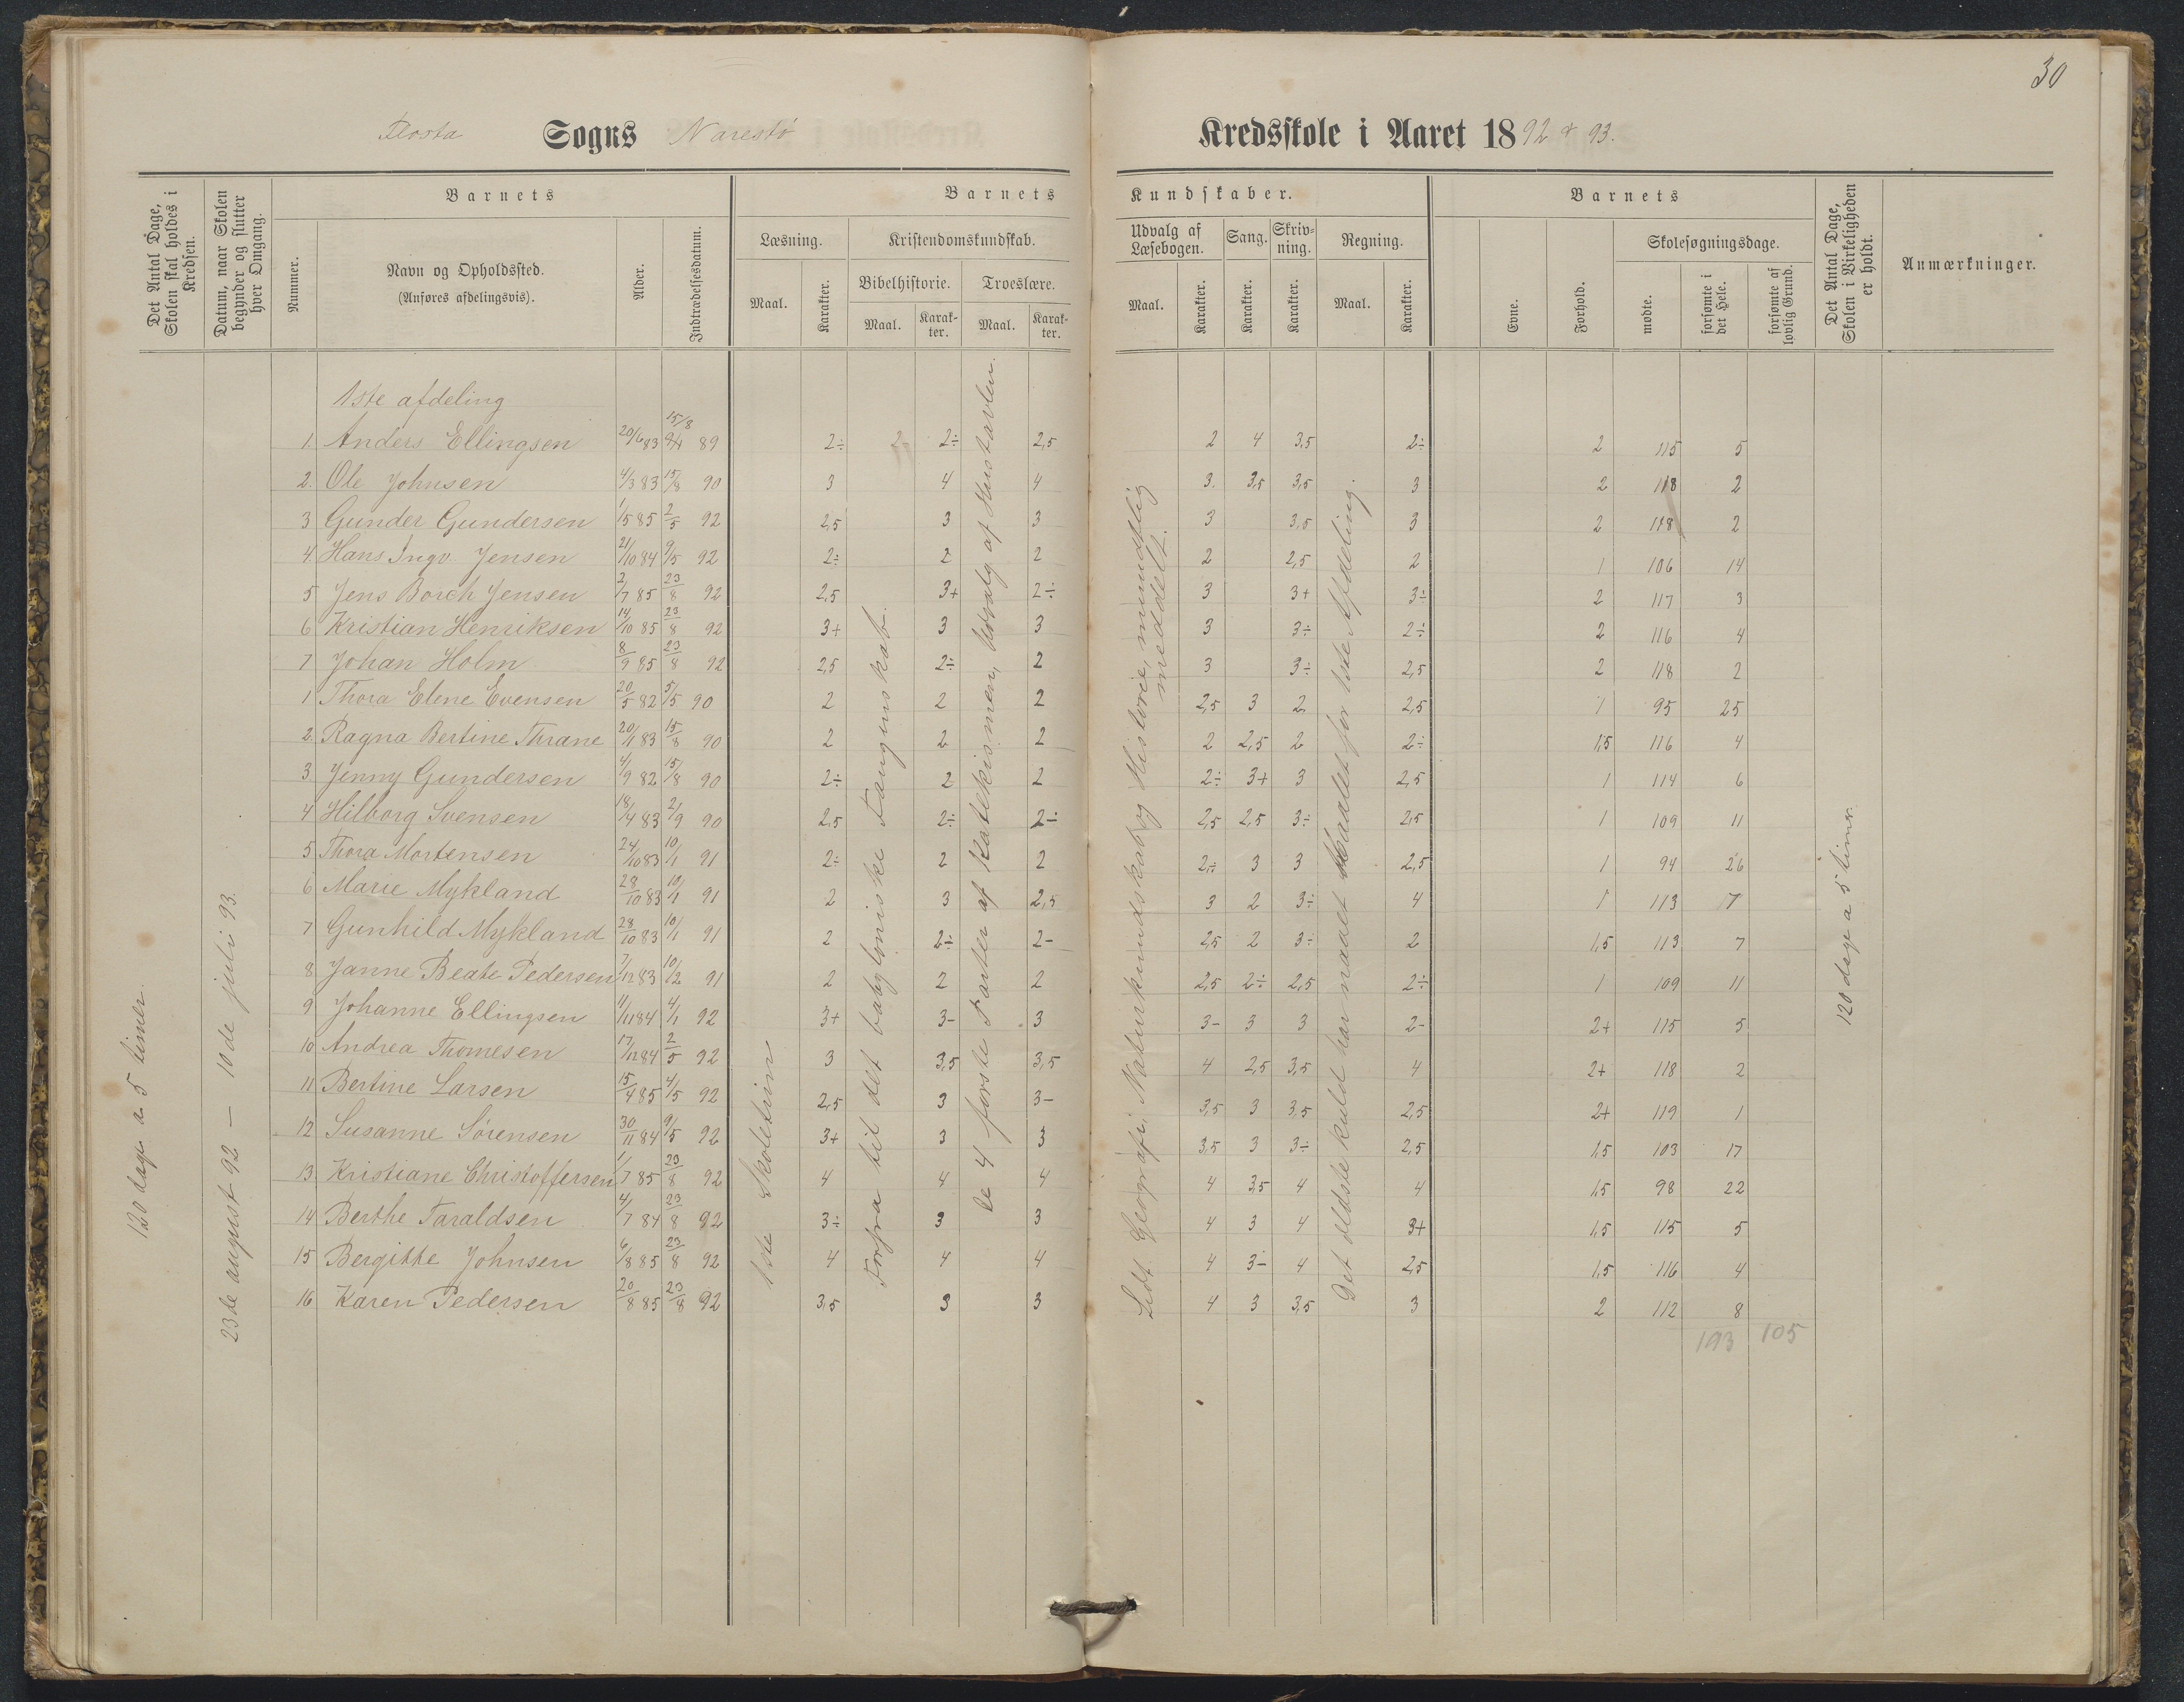 30
Flosta Sogns Narestö Kredsskole i Aaret 1892 & 93.
Det Antal Dage, Skolen skal holdes i Kredsen.
Datum, naar Skolen begynder og slutter hver Omgang.
Barnets
Nummer.
Navn og Opholdssted.
(Anføres afdelingsvis).
Alder.
Indtrædelsesdatum.
Barnets Kundskaber.
Læsning.
Maal.
Karakter.
Kristendomskundskab.
Bibelhistorie.
Maal.
Karakter.
Troeslære.
Maal.
Karakter.
Udvalg af Læsebogen.
Maal.
Karakter.
Sang.
Karakter.
Skrivning.
Karakter.
Regning.
Maal.
Karakter.
Barnets
Evne.
Forhold.
Skolesøgningsdage.
mødte.
forsømte i det Hele.
forsømte af lovlig Grund.
Det Antal Dage, Skolen i Virkeligheden er holdt.
Anmærkninger.
120 dage a 5 timer.
23de august 92 — 10de juli 93.
1ste Skoletrin
Forfra til det babyloniske Fangenskab.
De 4 første Parter af Katekismen, Udvalg af Hustavlen.
Lidt Geografi, Naturkundskab og Historie, mundtlig meddelt.
Det ældste kuld har naaet Maalet for 1ste Afdeling.
120 dage a 5 timer.
1ste afdeling
1. Anders Ellingsen 20/6 83 15/8 89 2÷ 2÷ 2,5 2 4 3,5 2÷ 2 115 5
2. Ole Johnsen 4/3 83 15/8 90 3 4 4 3. 3,5 3,5 3 2 118 2
3 Gunder Gundersen 1/5 85 2/5 92 2,5 3 3 3 3,5 3 2 118 2
4. Hans Ingv. Jensen 21/10 84 9/5 92 2÷ 2 2 2 2,5 2 1 106 14
5 Jens Borch Jensen 2/7 85 23/8 92 2,5 3+ 2÷ 3 3+ 3÷ 2 117 3
6 Kristian Henriksen 14/10 85 23/8 92 3+ 3 3 3 3÷ 2÷ 2 116 4
7 Johan Holm 8/9 85 23/8 92 2,5 2÷ 2 3 3÷ 2,5 2 118 2
1 Thora Elene Evensen 20/5 82 5/5 90 2 2 2 2,5 3 2 2,5 1 95 25
2 Ragna Bertine Thrane 20/1 83 15/8 90 2 2 2 2 2,5 2 2÷ 1,5 116 4
3 Jenny Gundersen 4/9 82 15/8 90 2÷ 2 2 2÷ 3+ 3 2,5 1 114 6
4 Hilborg Svensen 18/4 83 2/9 90 2,5 2÷ 2÷ 2,5 2,5 3÷ 2,5 1 109 11
5 Thora Mortensen 24/10 83 10/1 91 2÷ 2 2 2÷ 3 3 2,5 1 94 26
6 Marie Mykland 28/10 83 10/1 91 2 3 2,5 3 2 3÷ 4 1 113 7
7 Gunhild Mykland 28/10 83 10/1 91 2 2÷ 2- 2,5 2 3÷ 2 1,5 113 7
8 Janne Beate Pedersen 7/12 83 10/2 91 2 2 2 2,5 2÷ 2,5 2÷ 1 109 11
9 Johanne Ellingsen 11/11 84 4/1 92 3+ 3- 3 3- 3 3 2- 2+ 115 5
10 Andrea Thomesen 17/12 84 2/5 92 3 3,5 3,5 4 2,5 3,5 4 2+ 118 2
11 Bertine Larsen 15/4 85 4/5 92 2,5 3 3- 3,5 3 3,5 2,5 2+ 119 1
12 Susanne Sörensen 30/11 84 9/5 92 3+ 3 3 3,5 3 3÷ 2,5 1,5 103 17
13 Kristiane Christoffersen 1/7 85 23/8 92 4 4 4 4 3,5 4 4 1,5 98 22
14 Berthe Taraldsen 4/7 84 23/8 92 3÷ 3 3 4 3 4 3+ 1,5 115 5
15 Bergitte Johnsen 6/8 85 23/8 92 4 4 4 4 3- 4 2,5 1,5 116 4
16 Karen Pedersen 20/8 85 23/8 92 3,5 3 3 4 3 3,5 3 2 112 8
193 105